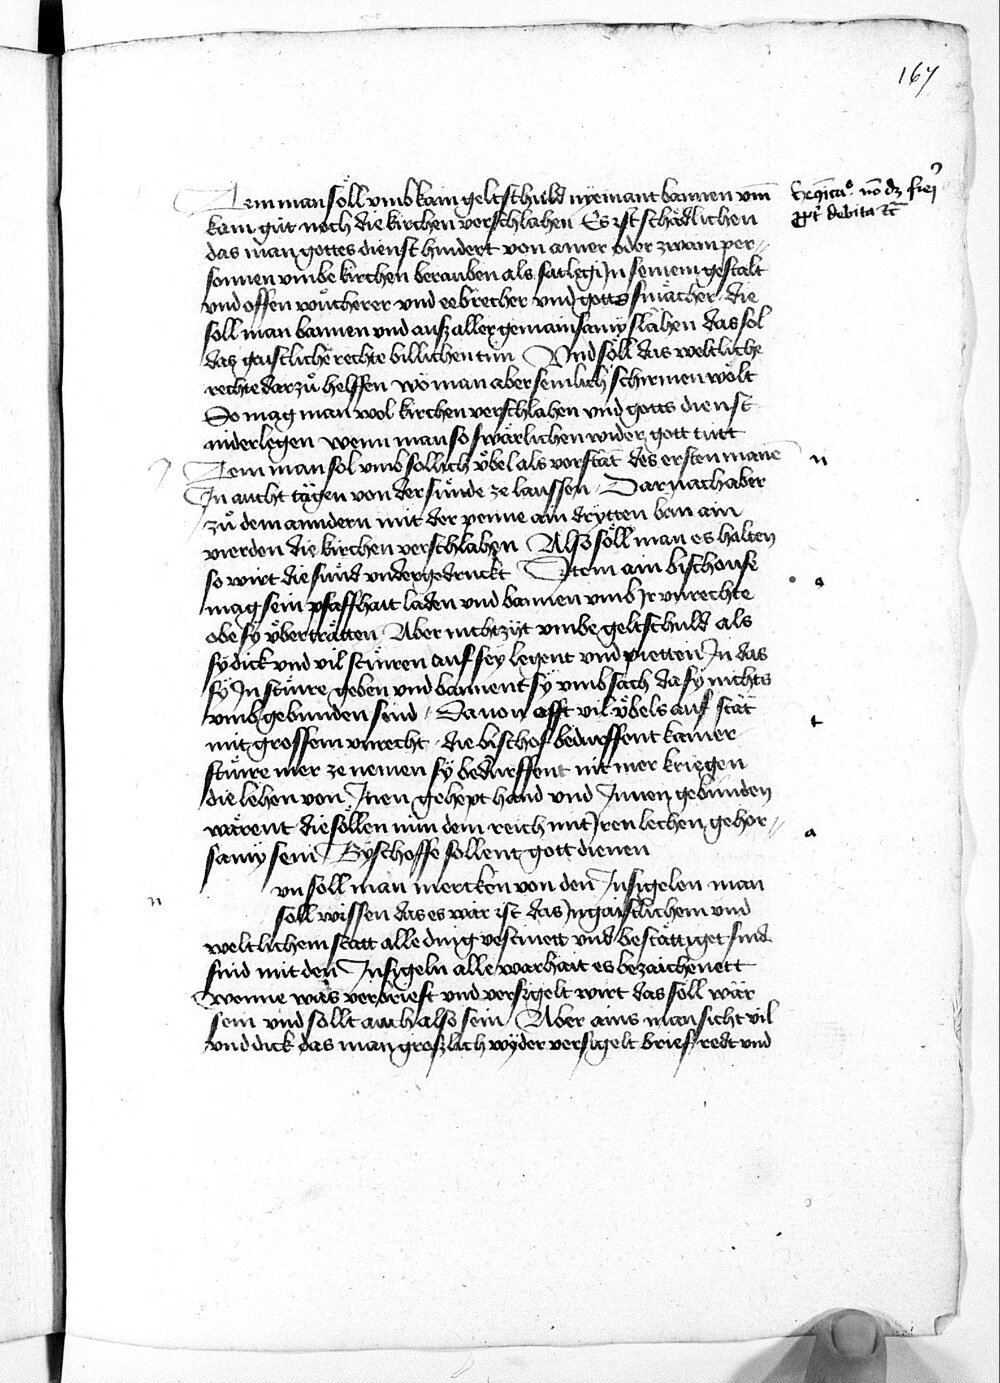 167
Item man söll vmb kain geltschuld nyemant bannen vm̄
kain gůt noch die kirchen verschlahen Es ist schädlichen
das man gottes dienst hindert von ainer oder zwaim per-
sonnen vmbe kirchen berauben als sarlegi In seinem gestalt
vnd offen wůcherer vnd eebrecher vnd gotts smächer die
soll man bannen vnd ausz aller gemainsamy slahen das sol
das gaistliche rechte billichen tun Vnd söll das weltliche
rechte darzů helffen wo man aber semlich schirmen wölt
So mag man wol kirchen verschlahen vnd gotts dienst
niderlegen wenn man so swärlichen wider gott tůtt
Item man sol vmb sollich v̈bel als vorstät des ersten manē
In aucht tägen von der sünde ze laussen Darnach aber
zů dem anndern mit der penne am drytten ban am
vierden die kirchen verschlahen Also söll man es halten
so wirt die sünd vndergedruckt Item ain bischoufe
mag sein pfaffhait laden vnd bannen vmb Ir vnrechte
obe sy v̈berträtten Aber nicht zyt vmbe geltschuld als
sy dick vnd vil stüren auf sey legent vnd pietten In das
sy In stüre geben vnd bannent sy vmb sach da sy nichts
vmb gebunden sind Dauon offt vil v̈bels auf stät
mit grossem vnrecht die bischof bedurffent kainer
stüre mer ze nemen sy bedurffent nit mer kriegen
die lehen von Inen gehept hand vnd Innen gebunden
wärent die söllen nun dem reich mit Iren lechen gehor-
samy sein Byschoffe sollent gott dienen
vn söll man mercken von den Insigelen man
söll wissen das es war ist das In gaistlichem vnd
weltlichem statt alle ding vestinett vnd bestättiget sind
sind mit den Insygeln alle warhait es bezaichenett
wenne was verbrieft vnd versigelt wirt das söll wär
sein vnd sollt auch also sein Aber ains man sicht vil
vnd dick das man groszlich wyder versigelt brief redt vnd